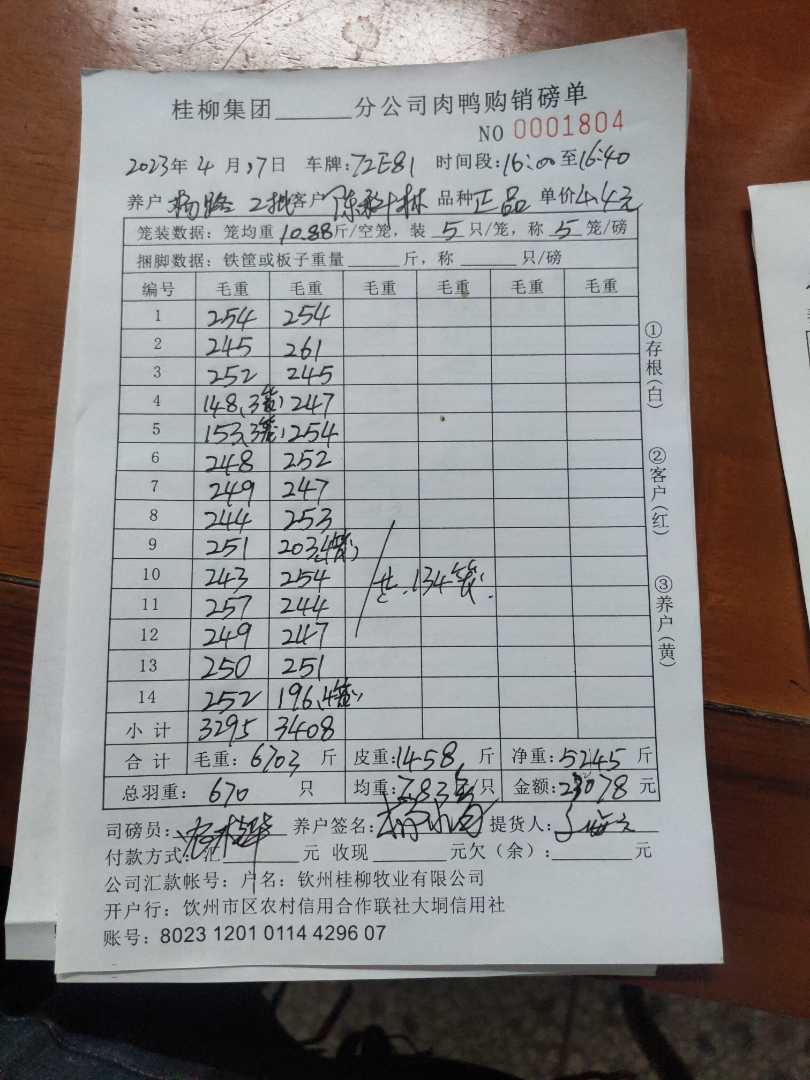 桂柳集团______分公司肉鸭购销磅单
NO 0001804
2023年 4 月 17日 车牌:72E81 时间段:16:00至16:40
养户 杨 2批 客户 陈 林 品种 正品 单价4.4元
笼装数据: 笼均重 10.88斤/空笼, 装 5 只/笼, 称 5 笼/磅
捆脚数据: 铁筐或板子重量______斤, 称______只/磅
编号 毛重 毛重 毛重 毛重 毛重 毛重
1 254 254
2 245 261
3 252 245
4 148(3笼) 247
5 153(3笼) 254
6 248 252
7 249 247
8 244 253
9 251 203(4笼)
10 243 254
11 257 244
12 249 247
13 250 251
14 252 196(4笼)
共134笼
小计 3295 3408
合计 毛重: 6703 斤 皮重:1458 斤 净重:5245斤
总羽重: 670 只 均重:7.83斤/只 金额:23078 元
司磅员: 养户签名: 提货人:
付款方式: 汇______元 收现______元欠(余):______元
公司汇款帐号: 户名: 钦州桂柳牧业有限公司
开户行: 饮州市区农村信用合作联社大垌信用社
账号: 8023 1201 0114 4296 07
①存根(白)
②客户(红)
③养户(黄)